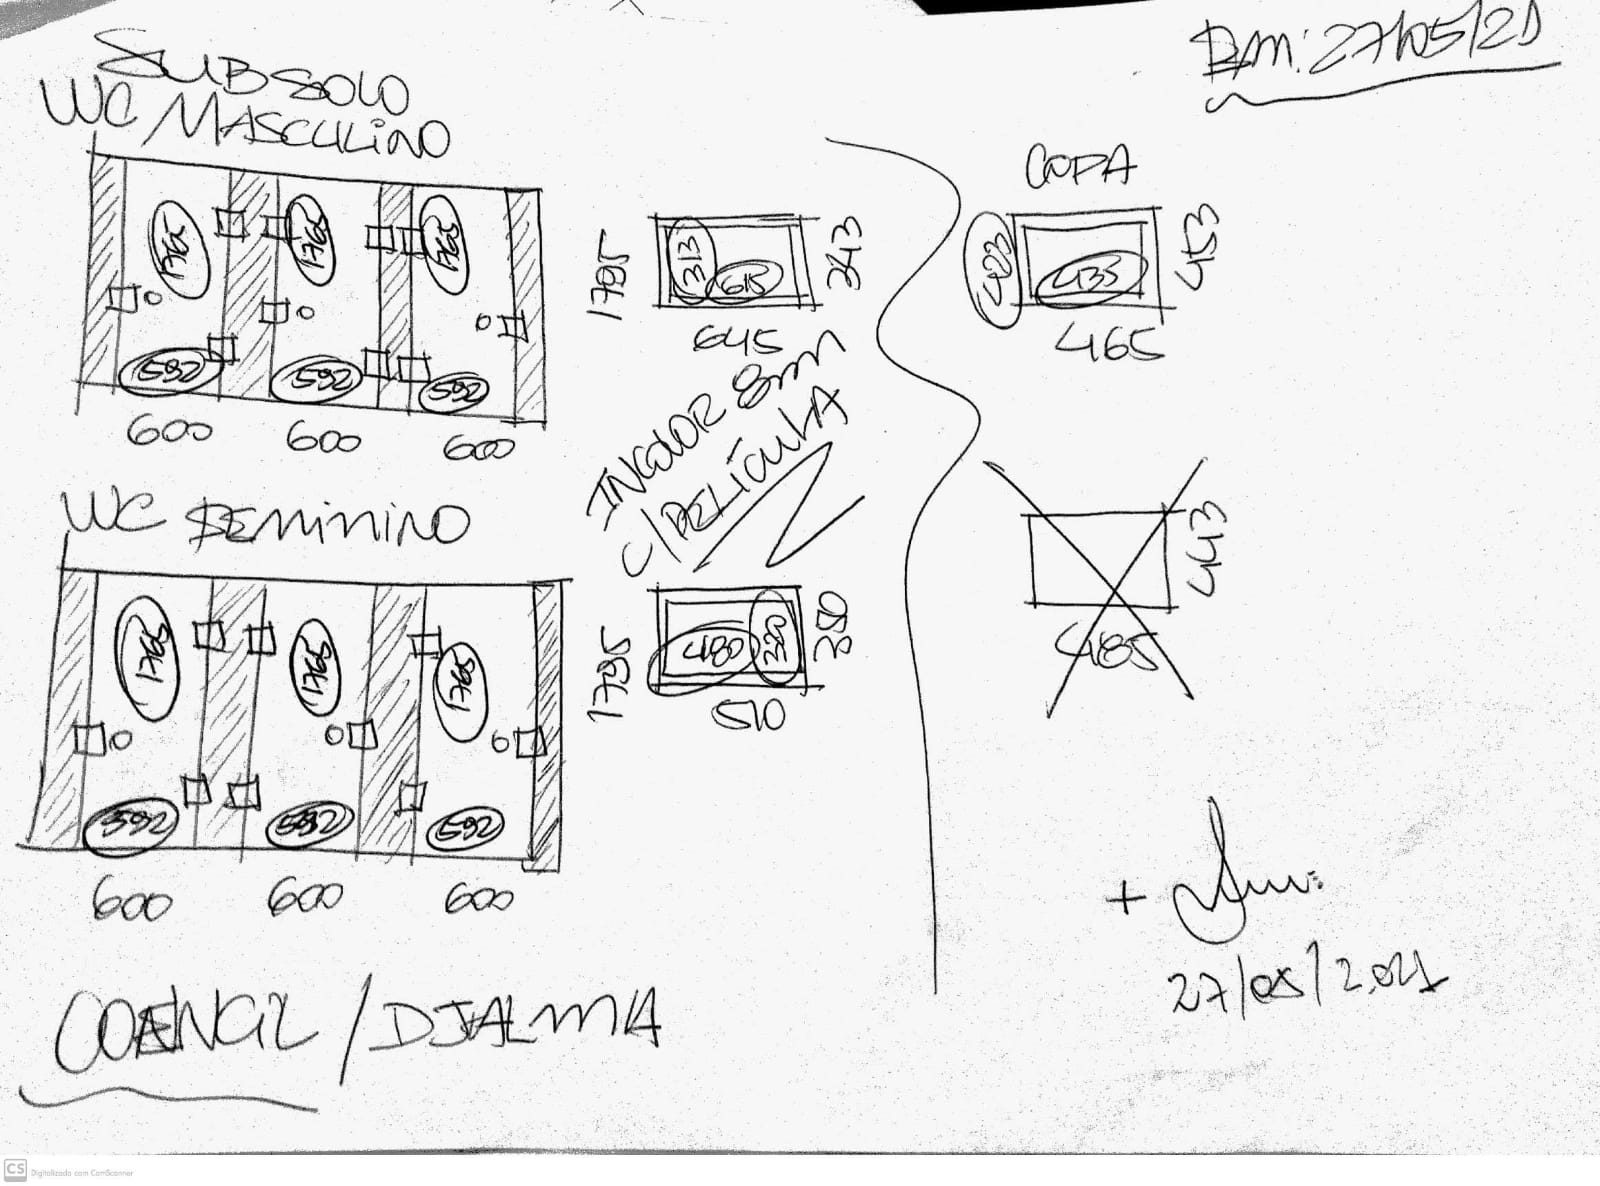 RM: 27/05/21
SUBSOLO
WC MASCULINO
1765 1765 1765
592 592 592
600 600 600
1795 313 615 343
645
INCOLOR 8mm
C/PELÍCULA
WC FEMININO
1765 1765 1765
592 592 592
600 600 600
1795 480 320 350
510
COPA
423 435 453
465
443
485
+
27/05/2.021
COENGIL / DJALMA
CS Digitalizado com CamScanner